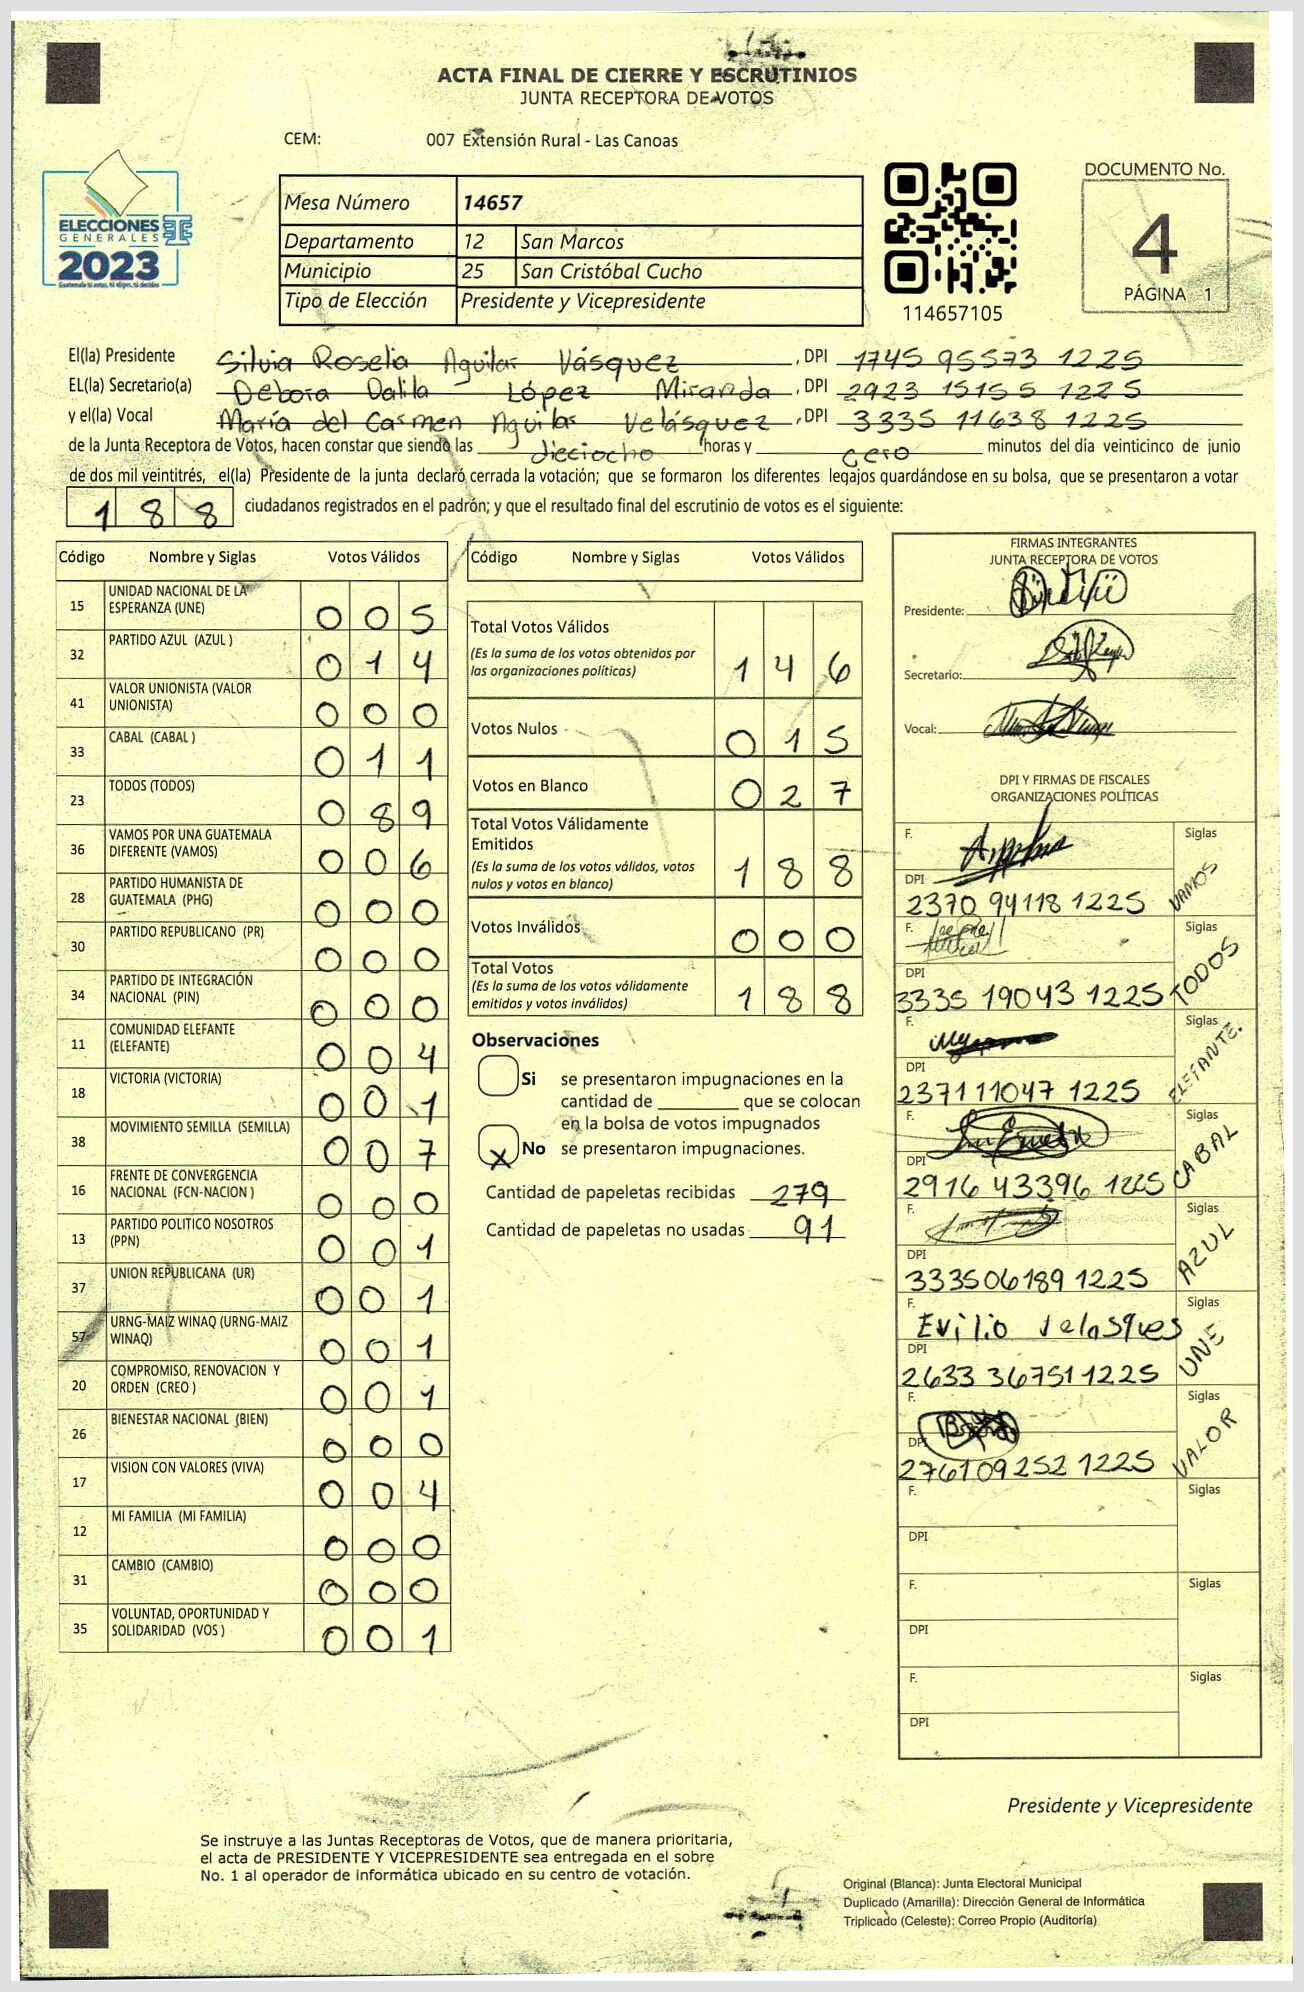 ACTA FINAL DE CIERRE Y ESCRUTINIOS
JUNTA RECEPTORA DE VOTOS
CEM: 007 Extensión Rural - Las Canoas
ELECCIONES
GENERALES
2023
Guatemala tú votas, tú eliges, tú decides
Mesa Número 14657
Departamento 12 San Marcos
Municipio 25 San Cristóbal Cucho
Tipo de Elección Presidente y Vicepresidente
114657105
DOCUMENTO No.
4
PÁGINA 1
El(la) Presidente Silvia Roselia Aguilar Vásquez, DPI 1745 95573 1225
EL(la) Secretario(a) Debora Dalila López Miranda, DPI 2923 15155 1225
y el(la) Vocal María del Carmen Aguilar Velásquez, DPI 3335 11638 1225
de la Junta Receptora de Votos, hacen constar que siendo las dieciocho horas y cero minutos del día veinticinco de junio
de dos mil veintitrés, el(la) Presidente de la junta declaró cerrada la votación; que se formaron los diferentes legajos guardándose en su bolsa, que se presentaron a votar
188 ciudadanos registrados en el padrón; y que el resultado final del escrutinio de votos es el siguiente:
Código Nombre y Siglas Votos Válidos
15 UNIDAD NACIONAL DE LA ESPERANZA (UNE) 005
32 PARTIDO AZUL (AZUL ) 014
41 VALOR UNIONISTA (VALOR UNIONISTA) 000
33 CABAL (CABAL ) 011
23 TODOS (TODOS) 089
36 VAMOS POR UNA GUATEMALA DIFERENTE (VAMOS) 006
28 PARTIDO HUMANISTA DE GUATEMALA (PHG) 000
30 PARTIDO REPUBLICANO (PR) 000
34 PARTIDO DE INTEGRACIÓN NACIONAL (PIN) 000
11 COMUNIDAD ELEFANTE (ELEFANTE) 004
18 VICTORIA (VICTORIA) 001
38 MOVIMIENTO SEMILLA (SEMILLA) 007
16 FRENTE DE CONVERGENCIA NACIONAL (FCN-NACION ) 000
13 PARTIDO POLITICO NOSOTROS (PPN) 001
37 UNION REPUBLICANA (UR) 001
57 URNG-MAIZ WINAQ (URNG-MAIZ WINAQ) 001
20 COMPROMISO, RENOVACION Y ORDEN (CREO ) 001
26 BIENESTAR NACIONAL (BIEN) 000
17 VISION CON VALORES (VIVA) 004
12 MI FAMILIA (MI FAMILIA) 000
31 CAMBIO (CAMBIO) 000
35 VOLUNTAD, OPORTUNIDAD Y SOLIDARIDAD (VOS ) 001
Código Nombre y Siglas Votos Válidos
Total Votos Válidos
(Es la suma de los votos obtenidos por
las organizaciones políticas) 146
Votos Nulos 015
Votos en Blanco 027
Total Votos Válidamente
Emitidos
(Es la suma de los votos válidos, votos
nulos y votos en blanco) 188
Votos Inválidos 000
Total Votos
(Es la suma de los votos válidamente
emitidos y votos inválidos) 188
Observaciones
Si se presentaron impugnaciones en la
cantidad de ________ que se colocan
en la bolsa de votos impugnados
X No se presentaron impugnaciones.
Cantidad de papeletas recibidas 279
Cantidad de papeletas no usadas 91
FIRMAS INTEGRANTES
JUNTA RECEPTORA DE VOTOS
Presidente:
Secretario:
Vocal:
DPI Y FIRMAS DE FISCALES
ORGANIZACIONES POLÍTICAS
F. Siglas VAMOS
DPI 2370 94118 1225
F. Siglas TODOS
DPI 3335 19043 1225
F. Siglas ELEFANTE.
DPI 2371 11047 1225
F. Siglas CABAL
DPI 2916 43396 1225
F. Siglas AZUL
DPI 3335 06189 1225
F. Evilio Velasques Siglas UNE
DPI 2633 36751 1225
F. Siglas VALOR
DPI 2761 09252 1225
F. Siglas
DPI
F. Siglas
DPI
F. Siglas
DPI
Presidente y Vicepresidente
Se instruye a las Juntas Receptoras de Votos, que de manera prioritaria,
el acta de PRESIDENTE Y VICEPRESIDENTE sea entregada en el sobre
No. 1 al operador de informática ubicado en su centro de votación.
Original (Blanca): Junta Electoral Municipal
Duplicado (Amarilla): Dirección General de Informática
Triplicado (Celeste): Correo Propio (Auditoría)